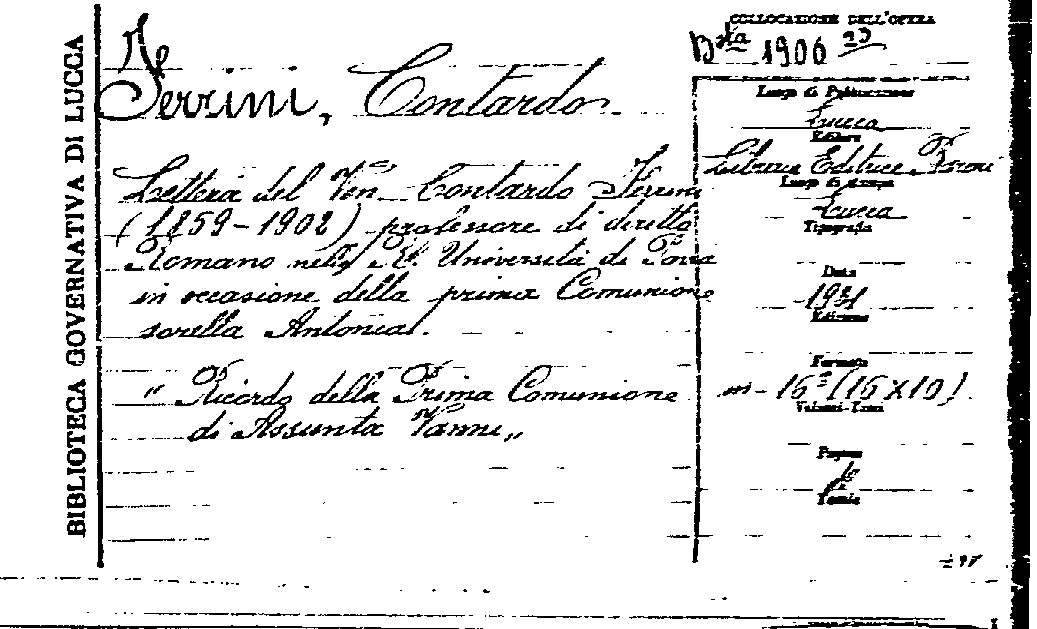 BIBLIOTECA GOVERNATIVA DI LUCCA
COLLOCAZIONE DELL'OPERA
Bta 1906 23
Ferrini, Contardo.
Lettera del Ven. Contardo Ferrini
(1859-1902) professore di diritto
Romano nella R. Università di Pavia
in occasione della prima Comunione
sorella Antonia.
" Ricordo della Prima Comunione
di Assunta Vanni "
Luogo di Pubblicazione
Lucca
Editore
Libreria Editrice Baroni
Luogo di stampa
Lucca
Tipografia
Data
1931
Edizione
Formato
in-16° (15x10)
Volumi-Tomi
Pagine
Tavole